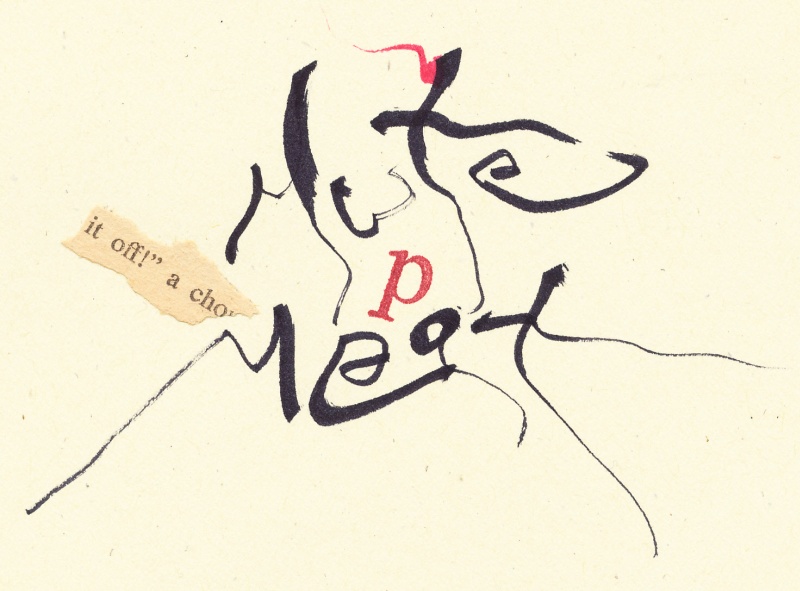 Mute
it off!” a cho
p
Meat